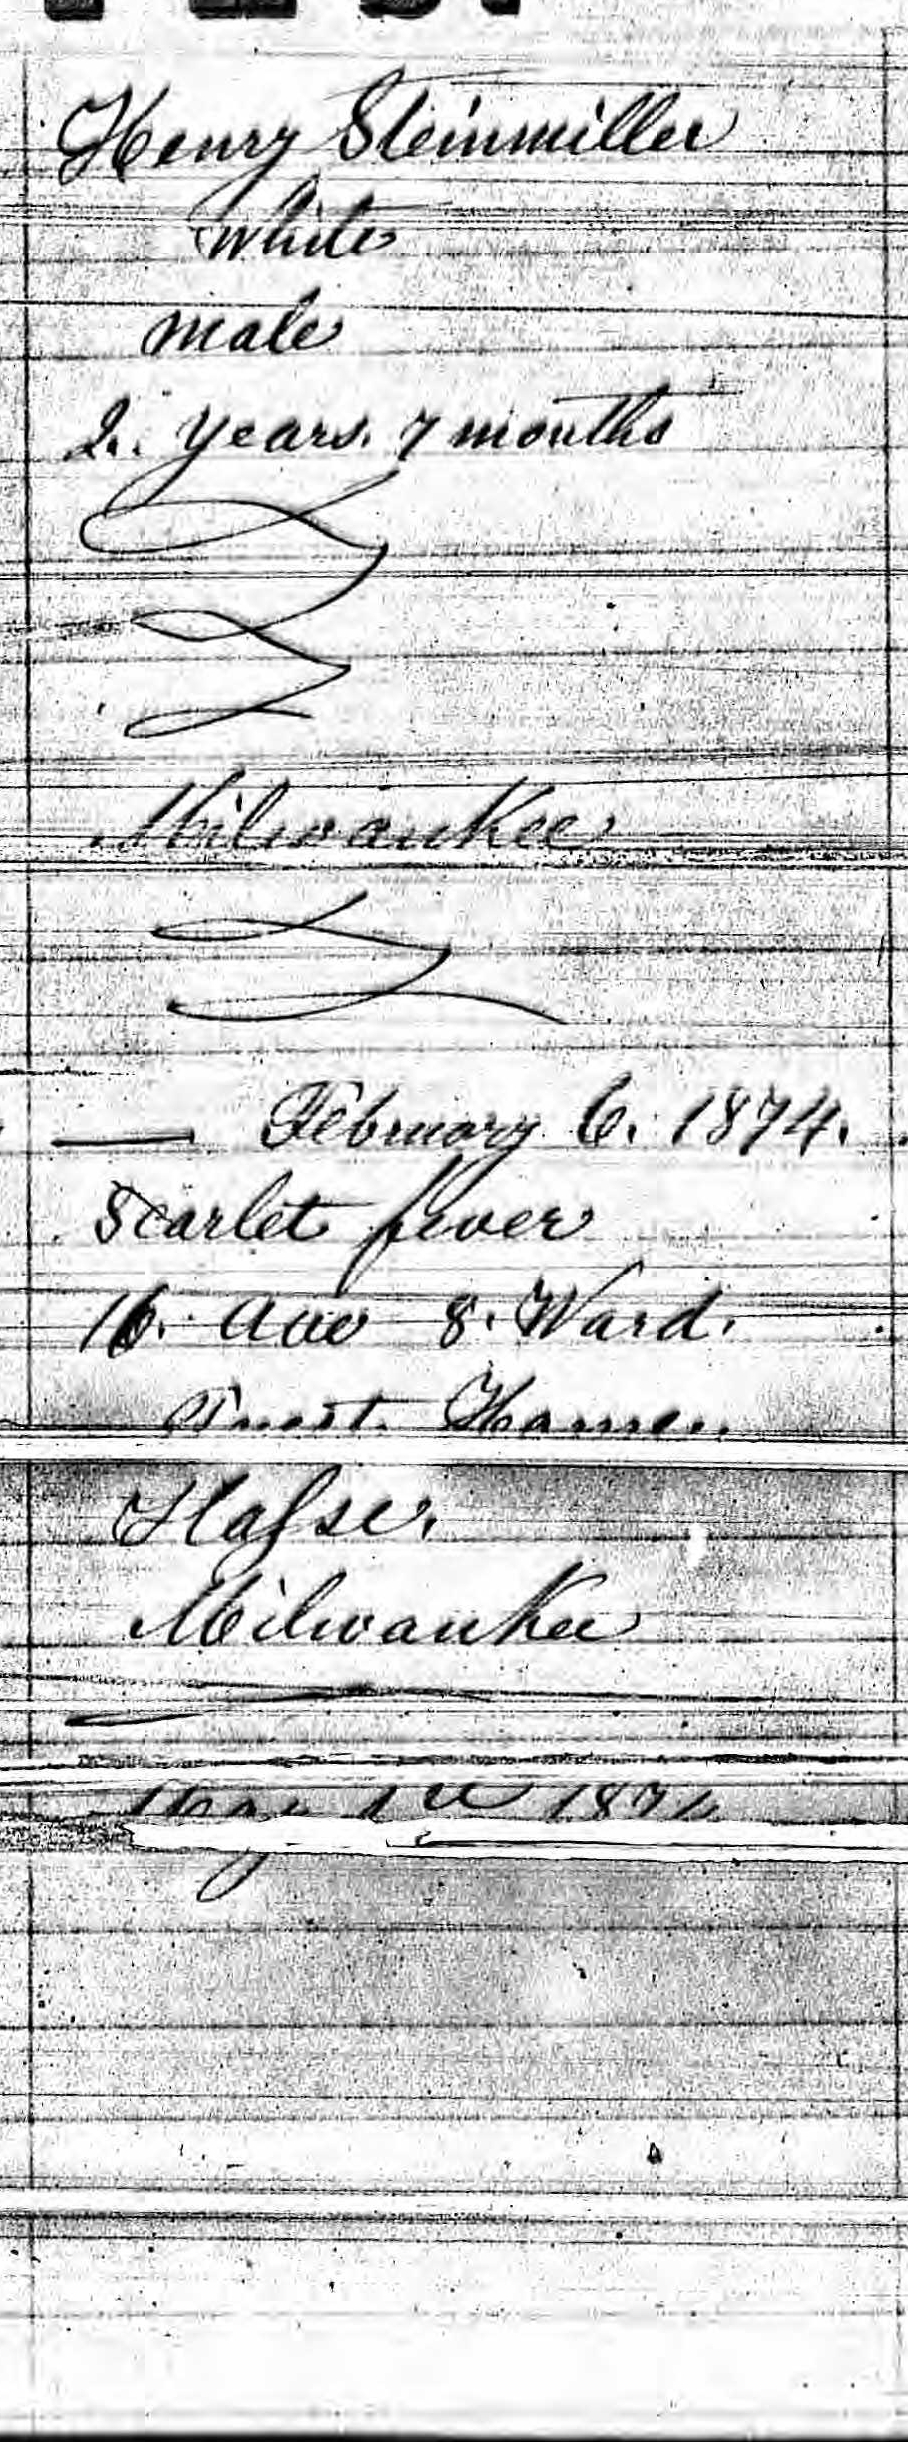 Henry Steinmiller
white
male
2. years. 7 months
Milwaukee
— February 6. 1874.
Scarlet fever
16. Ave 8. Ward.
Milwaukee
1874